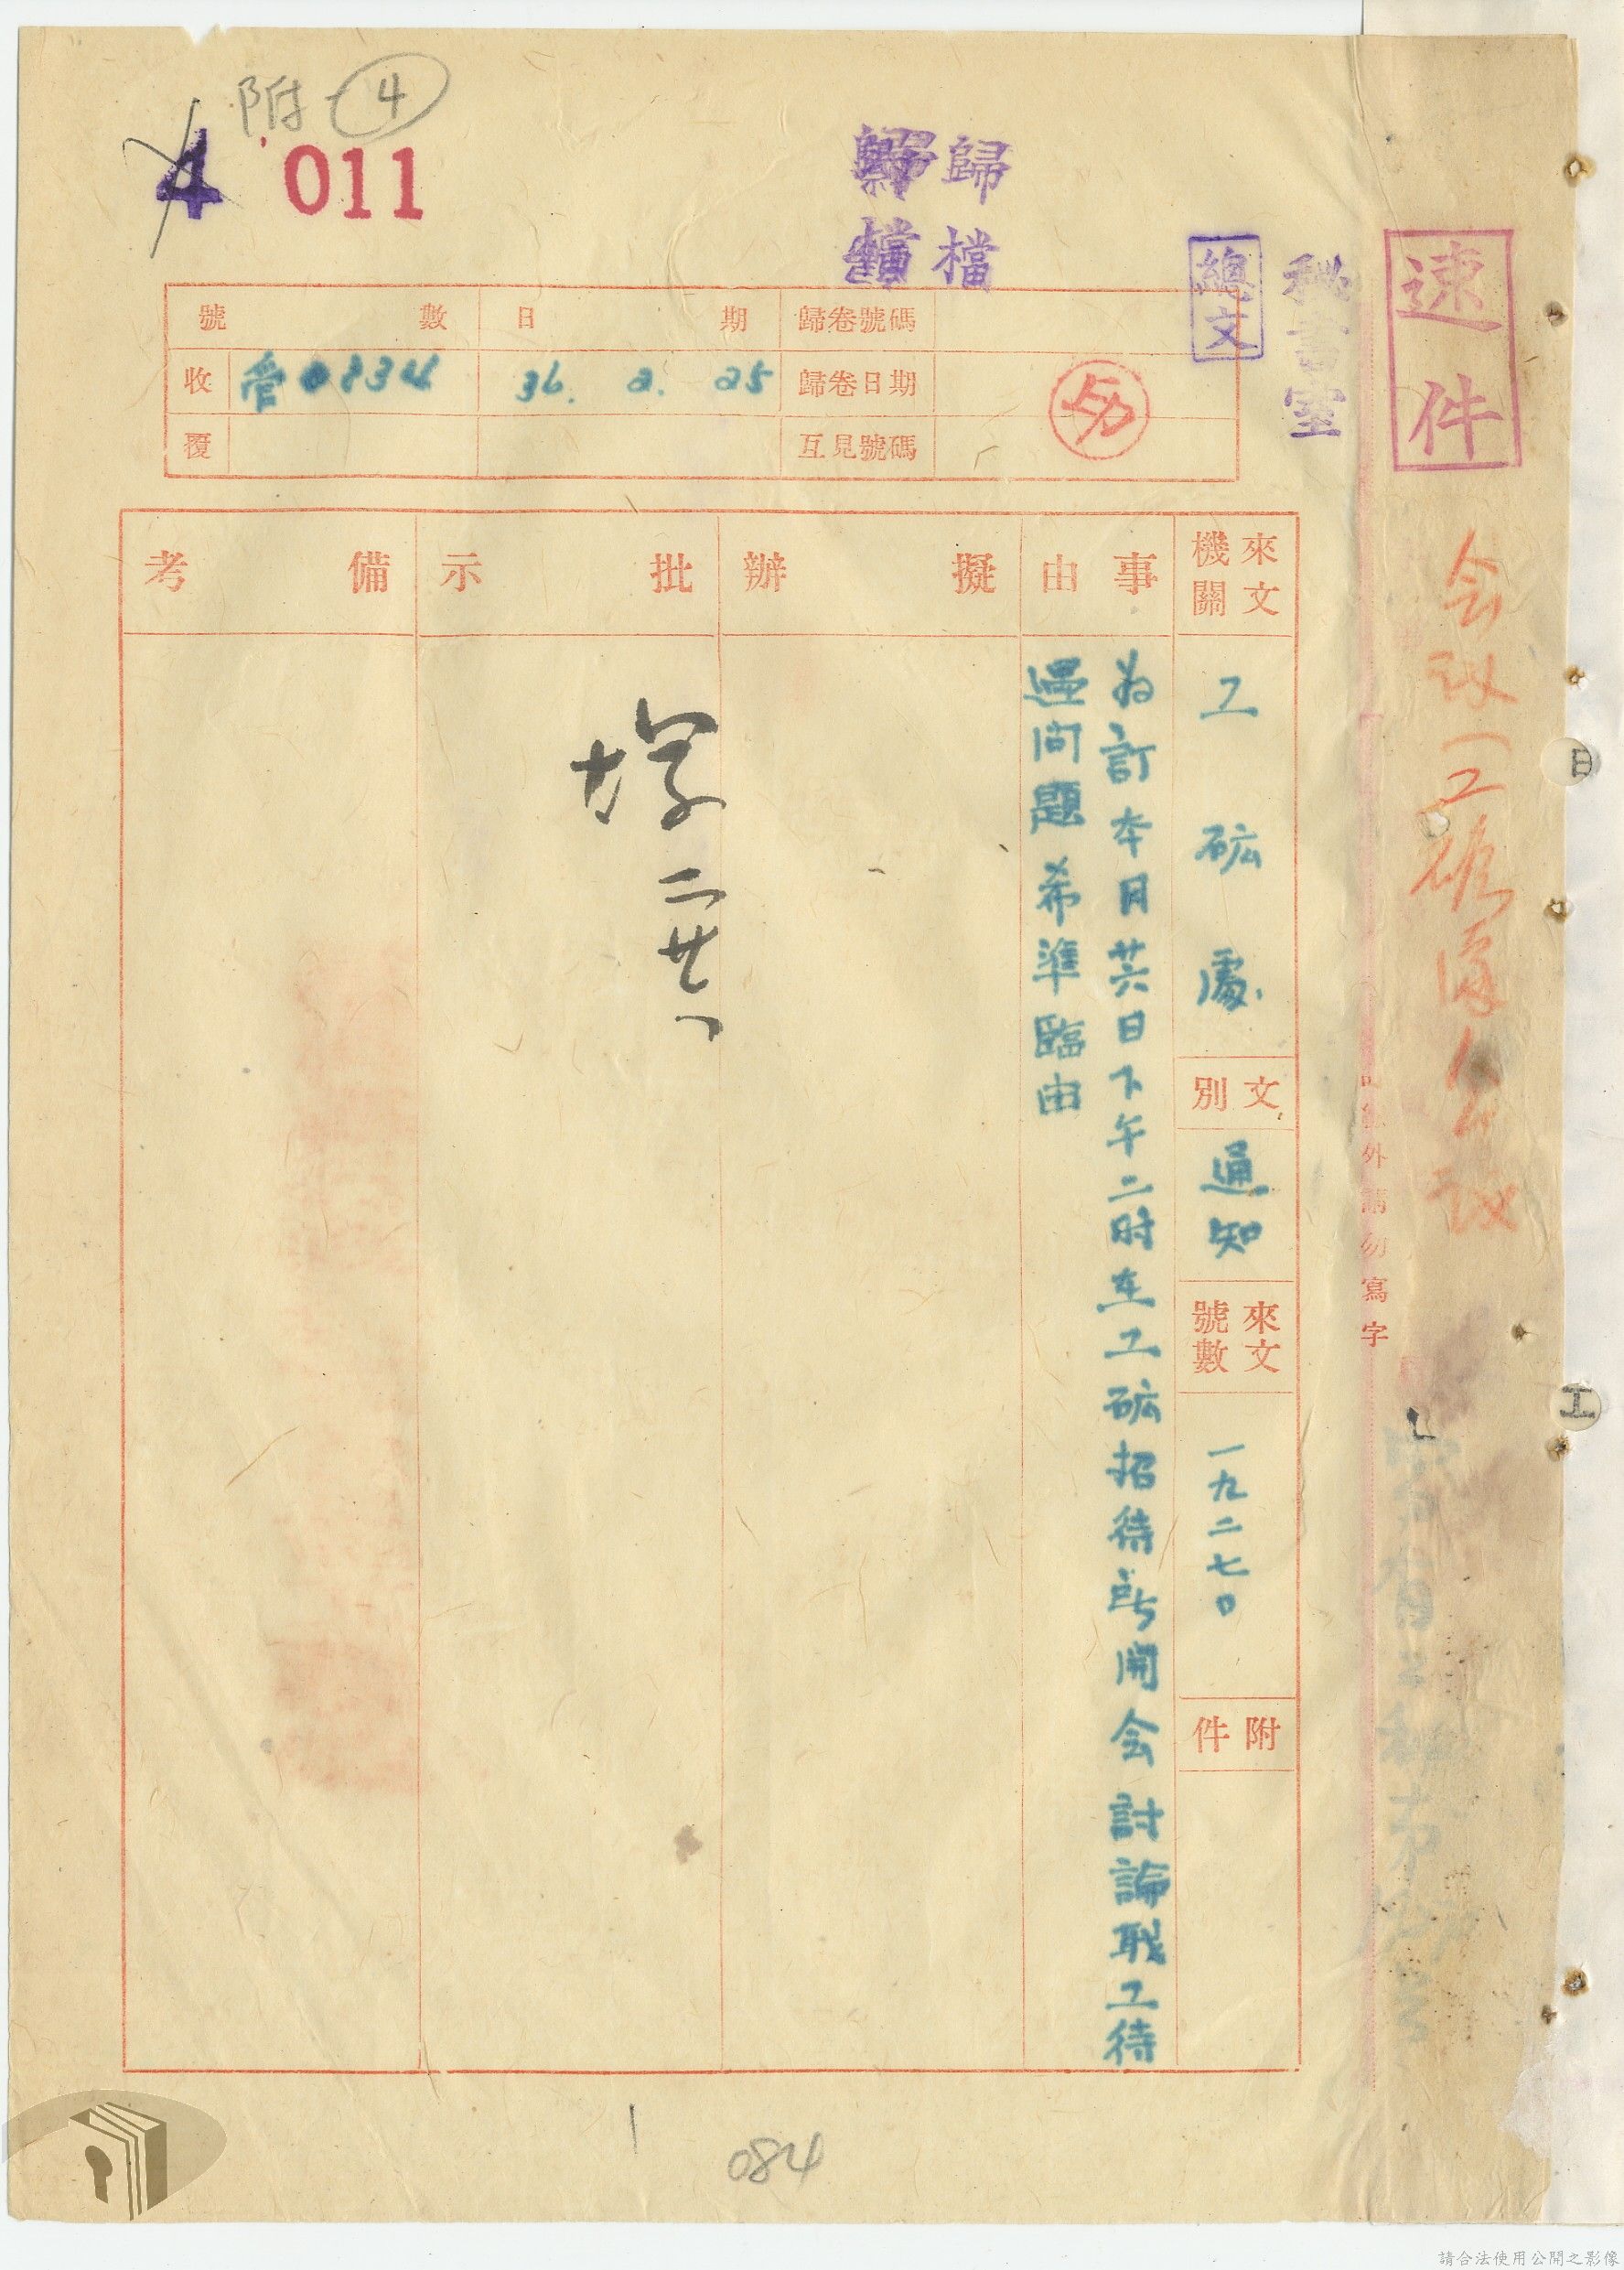 附-4
4 011
歸檔
歸檔
總文
秘書室
速件
號數 日期 歸卷號碼
收 36. 2. 25 歸卷日期
覆 互見號碼
会议(工礦
来文機關
工矿處
文別
通知
來文號數
一九二七〇
附件
事由
为訂本月廿六日下午二时在工矿招待所開会討論职工待
遇問題希準臨由
擬辦
批示
二廿八
備考
外請勿寫字
日
工
084
請合法使用公開之影像